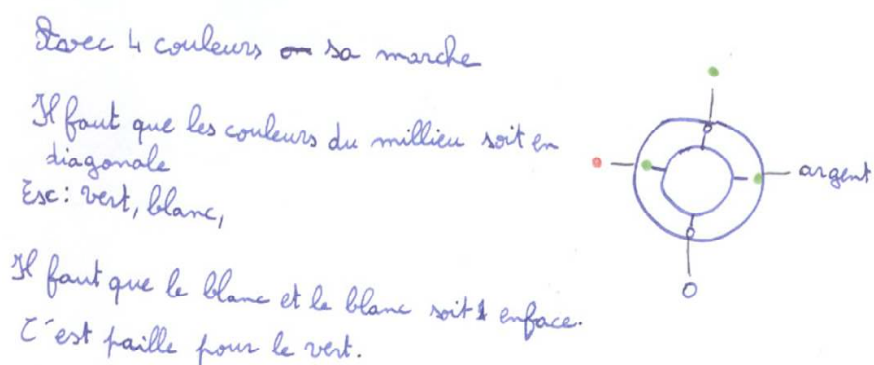 Avec 4 couleurs sa marche
Il faut que les couleurs du millieu soit en
diagonale
Esc: vert, blanc,
argent
Il faut que le blanc et le blanc soit enface.
C'est paille pour le vert.